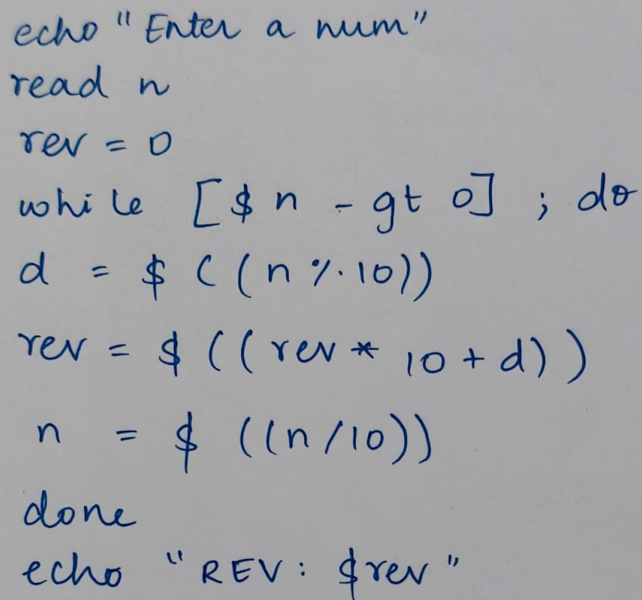 echo "Enter a num"
read n
rev = 0
while [$ n - gt 0] ; do
d = $ ((n % 10))
rev = $ ((rev * 10 + d))
n = $ ((n / 10))
done
echo "REV: $rev"